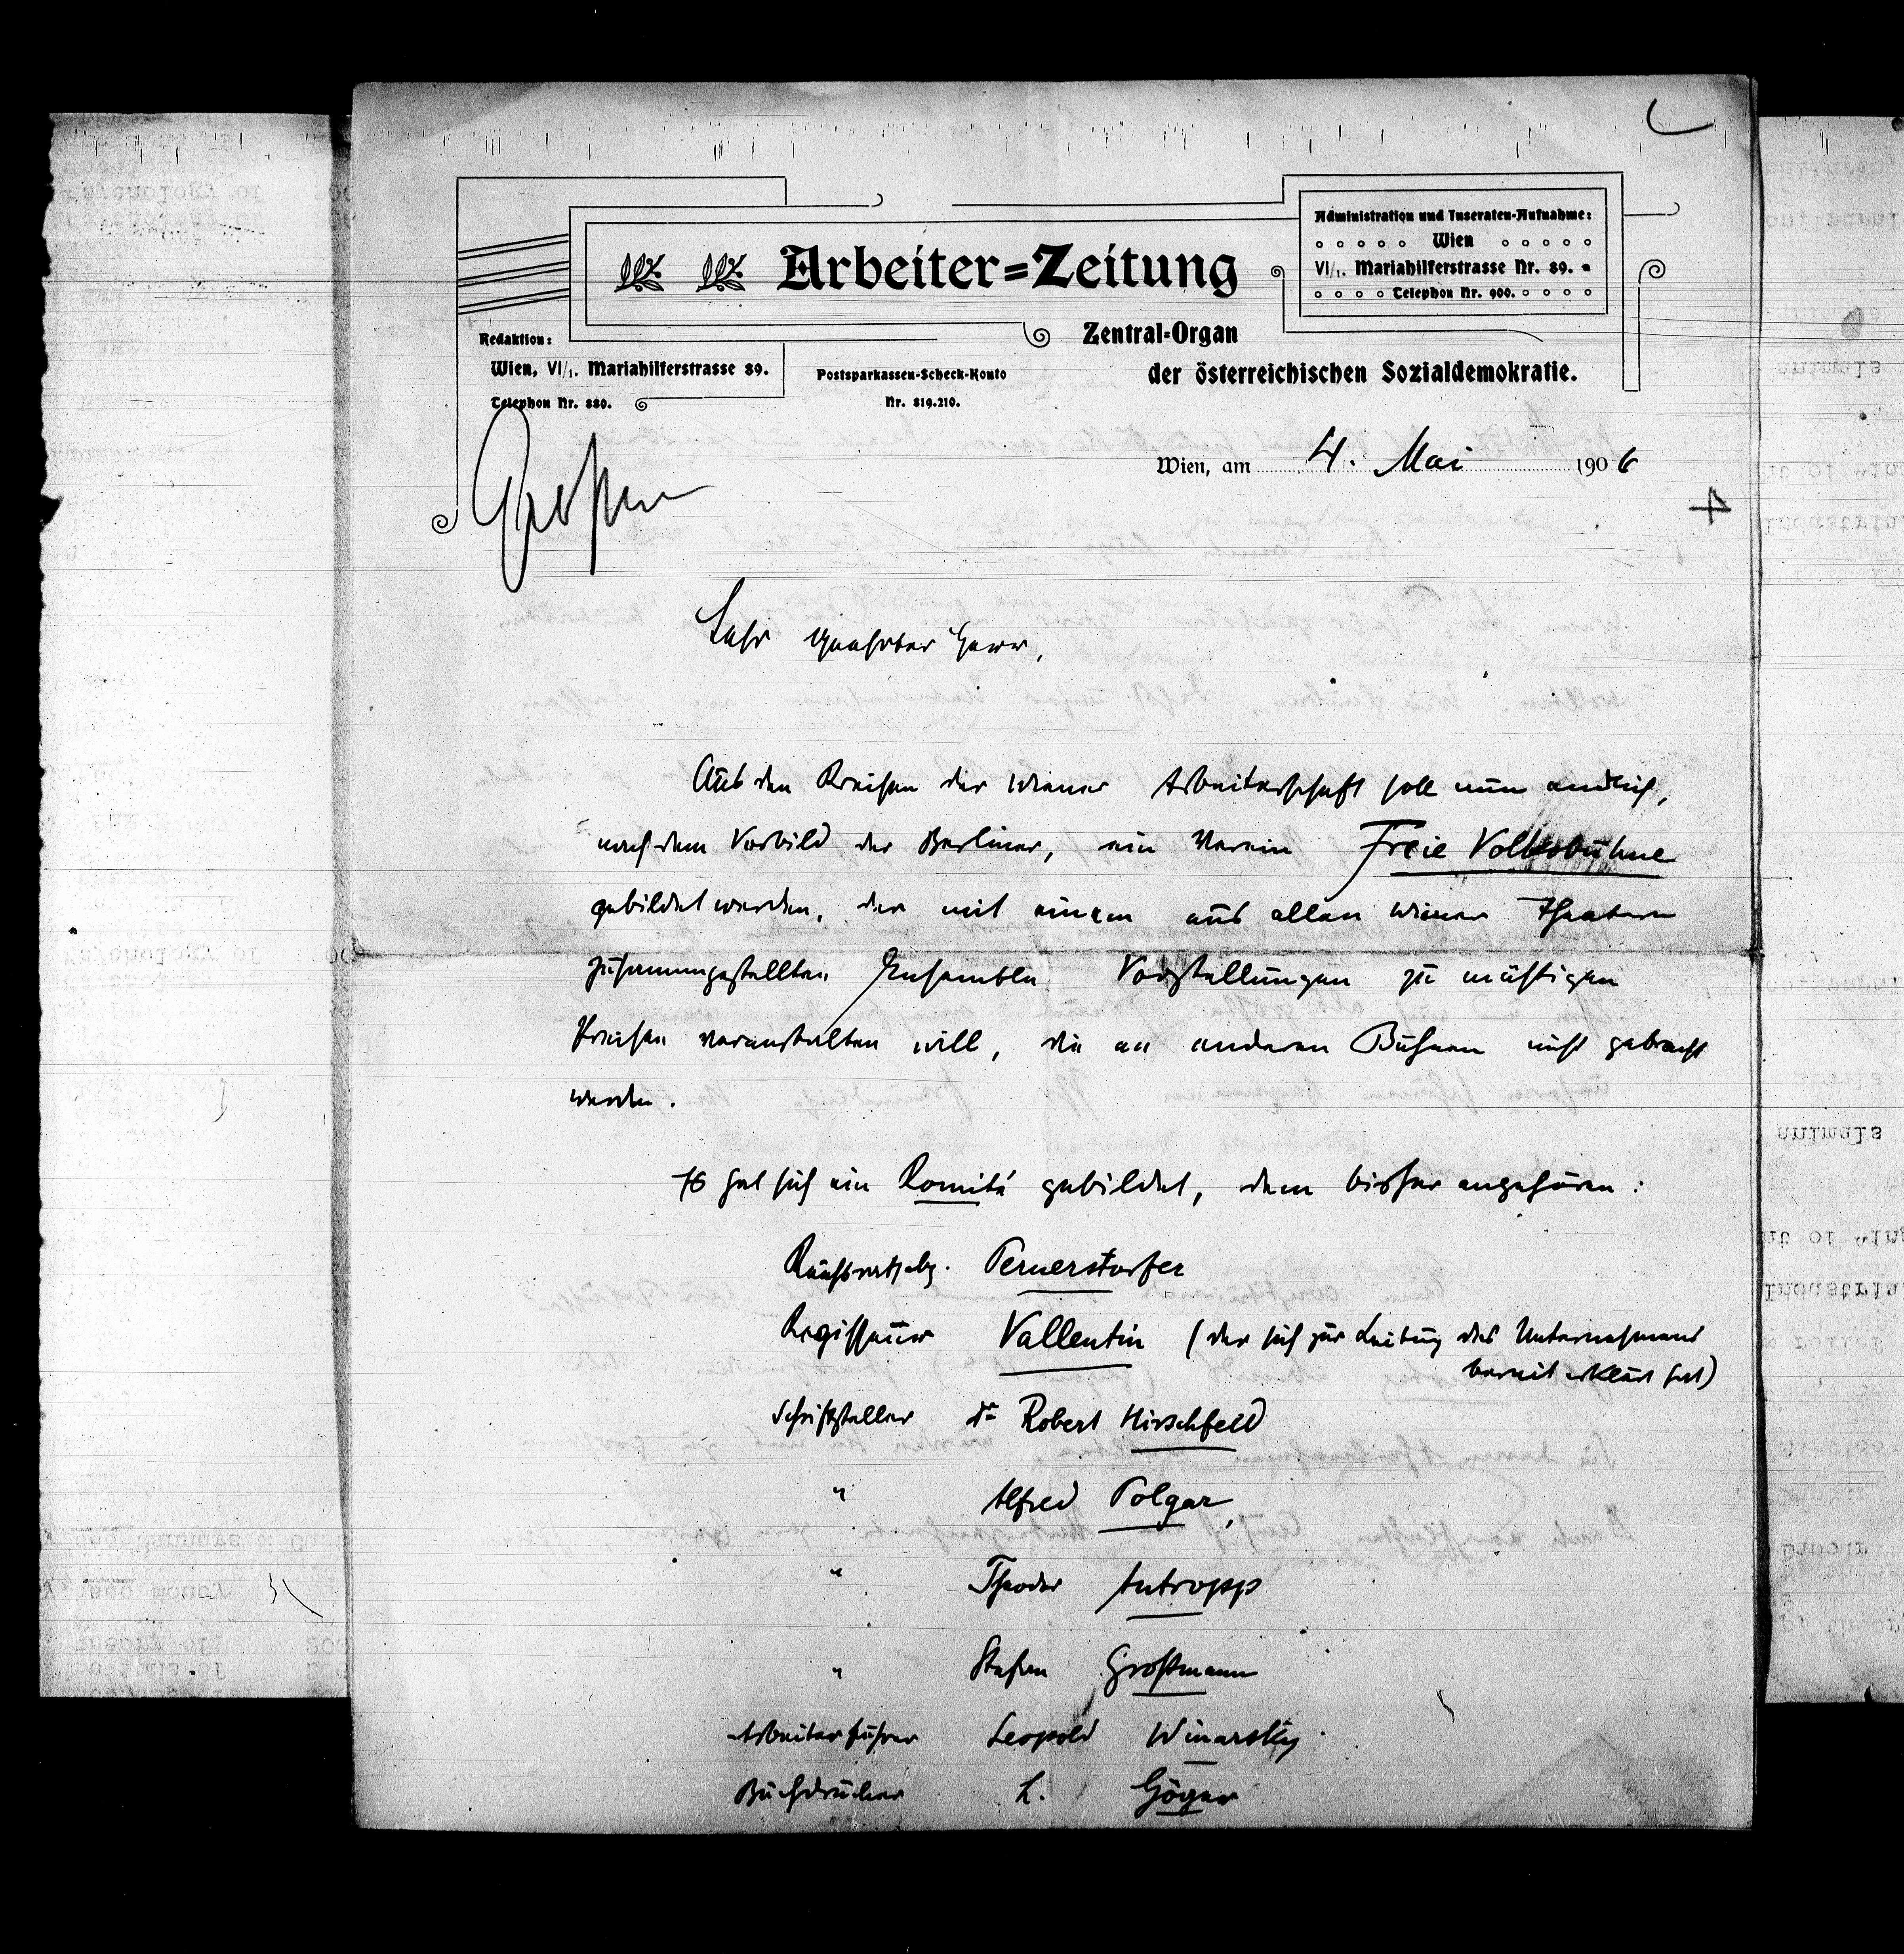 Administration und Inseraten-Aufnahme:
Wien
VI/1. Mariahilferstrasse Nr. 89.
Telephon Nr. 900.
Arbeiter=Zeitung
Zentral-Organ
der österreichischen Sozialdemokratie.
Redaktion:
Wien, VI/1. Mariahilferstrasse 89.
Telephon Nr. 880.
Postsparkassen-Scheck-Konto
Nr. 819.210.
Wien, am 4. Mai 1906
4
Großm
Sehr geehrter Herr,
Aus den Kreisen der Wiener Arbeiterschaft soll nun endlich,
nach dem Vorbild der Berliner, ein Verein Freie Volksbühne
gebildet werden, der mit einem aus allen Wiener Theatern
zusammengestellten Ensemble Vorstellungen zu mäßigen
Preisen veranstalten will, die an anderen Bühnen nicht gebracht
werden.
Es hat sich ein Komité gebildet, dem bisher angehören:
Reichsratsabg. Pernerstorfer
Regisseur Vallentin (der sich zur Leitung des Unternehmens
bereit erklärt hat)
Schriftsteller Dr Robert Hirschfeld
" Alfred Polgar,
" Theodor Antropp
" Stefan Großmann
Arbeiterführer Leopold Winarsky
Buchdrucker L. Göger